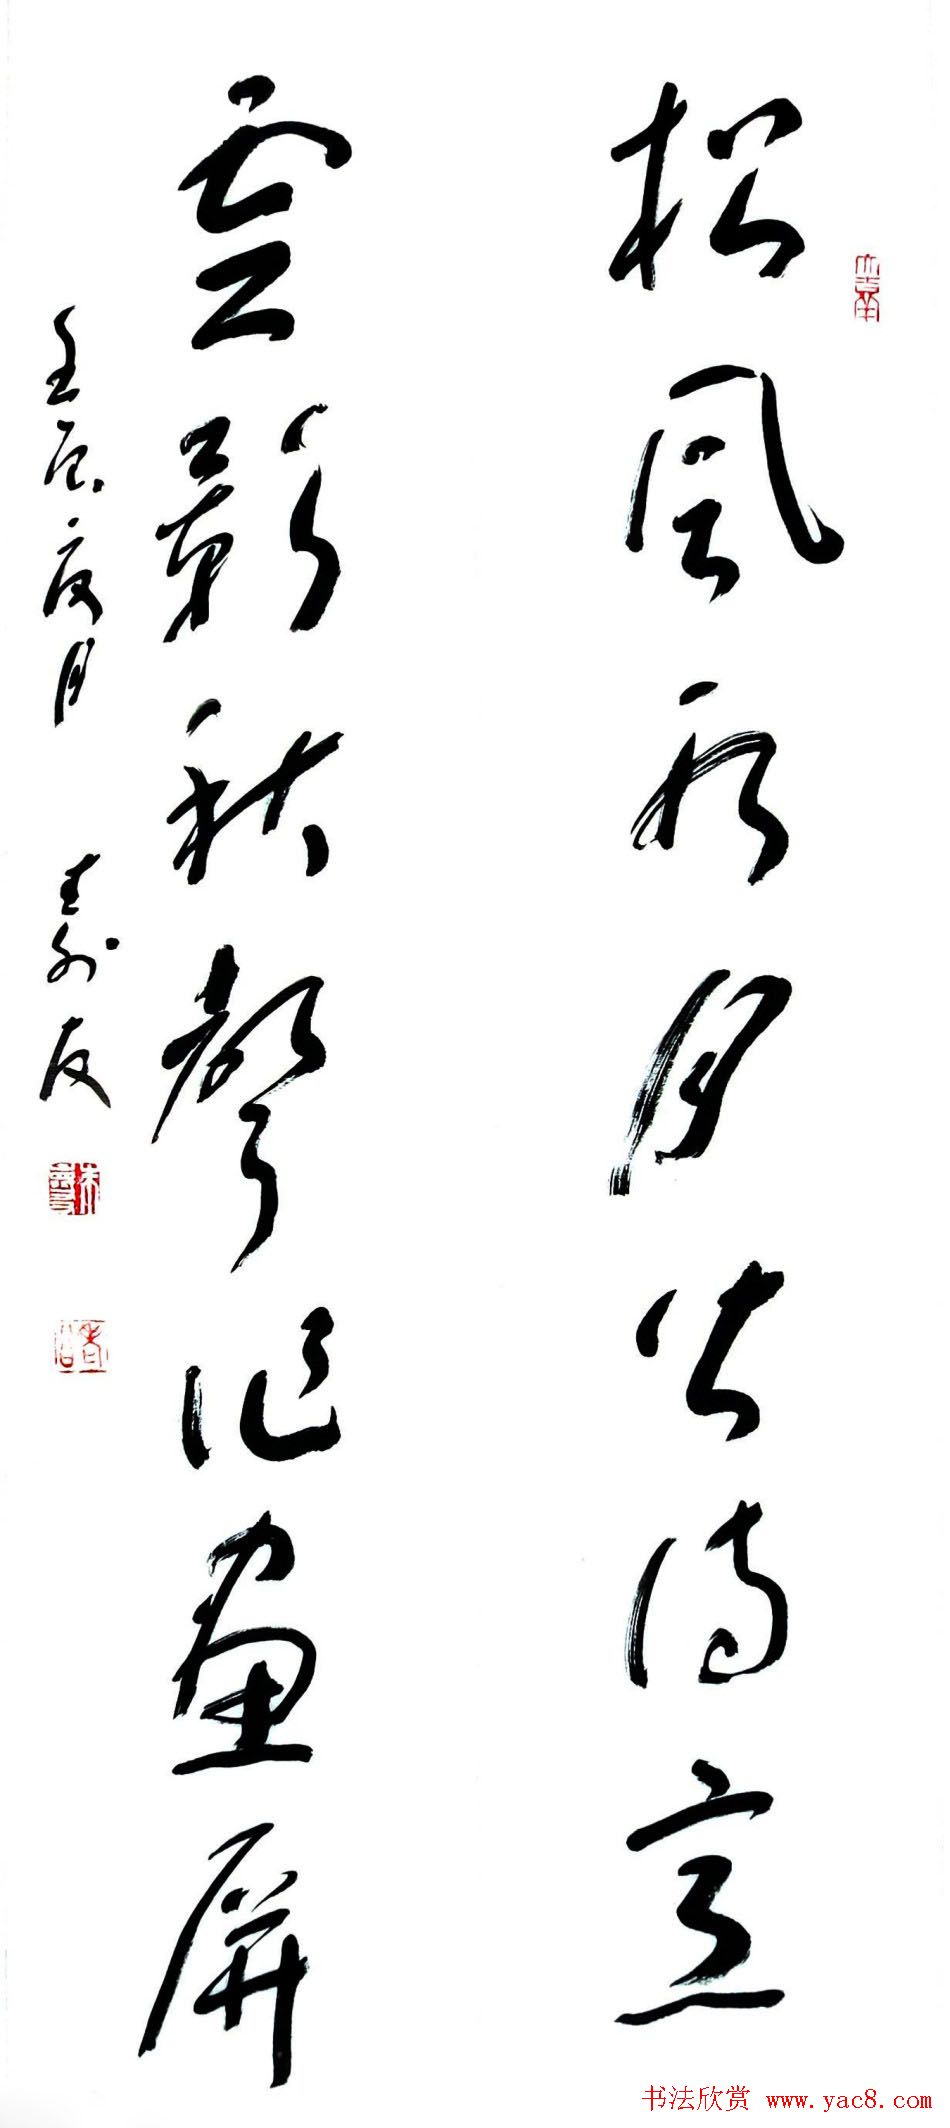 松風月皆詩意
雲影秋聲作畫屏
壬辰夏月 友
书法欣赏 www.yac8.com